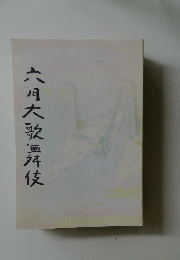 六月大歌舞伎